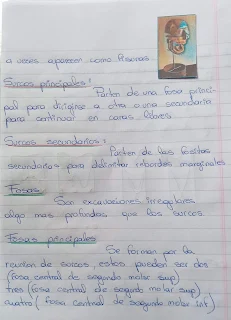 a veces aparecen como fisuras
Surcos principales:
Parten de una fosa princi-
pal para dirigirse a otra o una secundaria
para continuar en caras libres
Surcos secundarios:
Parten de las fositas
secundarias para delimitar rebordes marginales
Fosas
Son excavaciones irregulares
algo mas profundas que los surcos.
Fosas principales
Se forman por la
reunion de surcos, estos pueden ser dos
(fosa central de segundo molar sup)
tres (fosa central de segundo molar sup)
cuatro (fosa central de segundo molar inf)